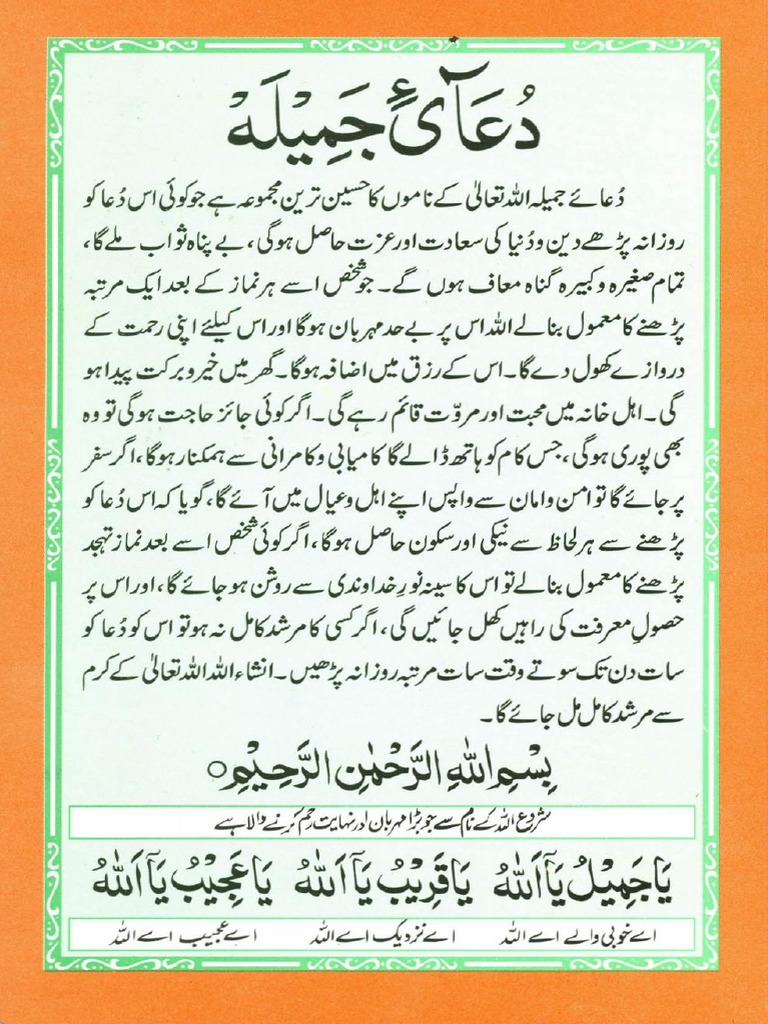 دُعَآئِ جَمِیْلَہْ
دُعائے جمیلہ اللہ تعالیٰ کے ناموں کا حسین ترین مجموعہ ہے جو کوئی اس دُعا کو
روزانہ پڑھے دین و دُنیا کی سعادت اور عزت حاصل ہوگی، بے پناہ ثواب ملے گا،
تمام صغیرہ و کبیرہ گناہ معاف ہوں گے۔ جو شخص اسے ہر نماز کے بعد ایک مرتبہ
پڑھنے کا معمول بنالے اللہ اس پر بے حد مہربان ہوگا اور اس کیلئے اپنی رحمت کے
دروازے کھول دے گا۔ اس کے رزق میں اضافہ ہوگا۔ گھر میں خیر و برکت پیدا ہو
گی۔ اہل خانہ میں محبت اور مروّت قائم رہے گی۔ اگر کوئی جائز حاجت ہوگی تو وہ
بھی پوری ہوگی، جس کام کو ہاتھ ڈالے گا کامیابی و کامرانی سے ہمکنار ہوگا، اگر سفر
پر جائے گا تو امن و امان سے واپس اپنے اہل و عیال میں آئے گا، گویا کہ اس دُعا کو
پڑھنے سے ہر لحاظ سے نیکی اور سکون حاصل ہوگا، اگر کوئی شخص اسے بعد نماز تہجد
پڑھنے کا معمول بنالے تو اس کا سینہ نورِ خداوندی سے روشن ہو جائے گا، اور اس پر
حصولِ معرفت کی راہیں کھل جائیں گی، اگر کسی کا مرشد کامل نہ ہو تو اس کو دُعا کو
سات دن تک سوتے وقت سات مرتبہ روزانہ پڑھیں۔ انشاء اللہ اللہ تعالیٰ کے کرم
سے مرشد کامل مل جائے گا۔
بِسْمِ اللّٰہِ الرَّحْمٰنِ الرَّحِیْمِ○
شروع اللہ کے نام سے جو بڑا مہربان اور نہایت رحم کرنے والا ہے
یَا جَمِیْلُ یَآ اَللّٰہُ یَا قَرِیْبُ یَآ اَللّٰہُ یَا عَجِیْبُ یَآ اَللّٰہُ
اے خوبی والے اے اللہ اے نزدیک اے اللہ اے عجیب اے اللہ